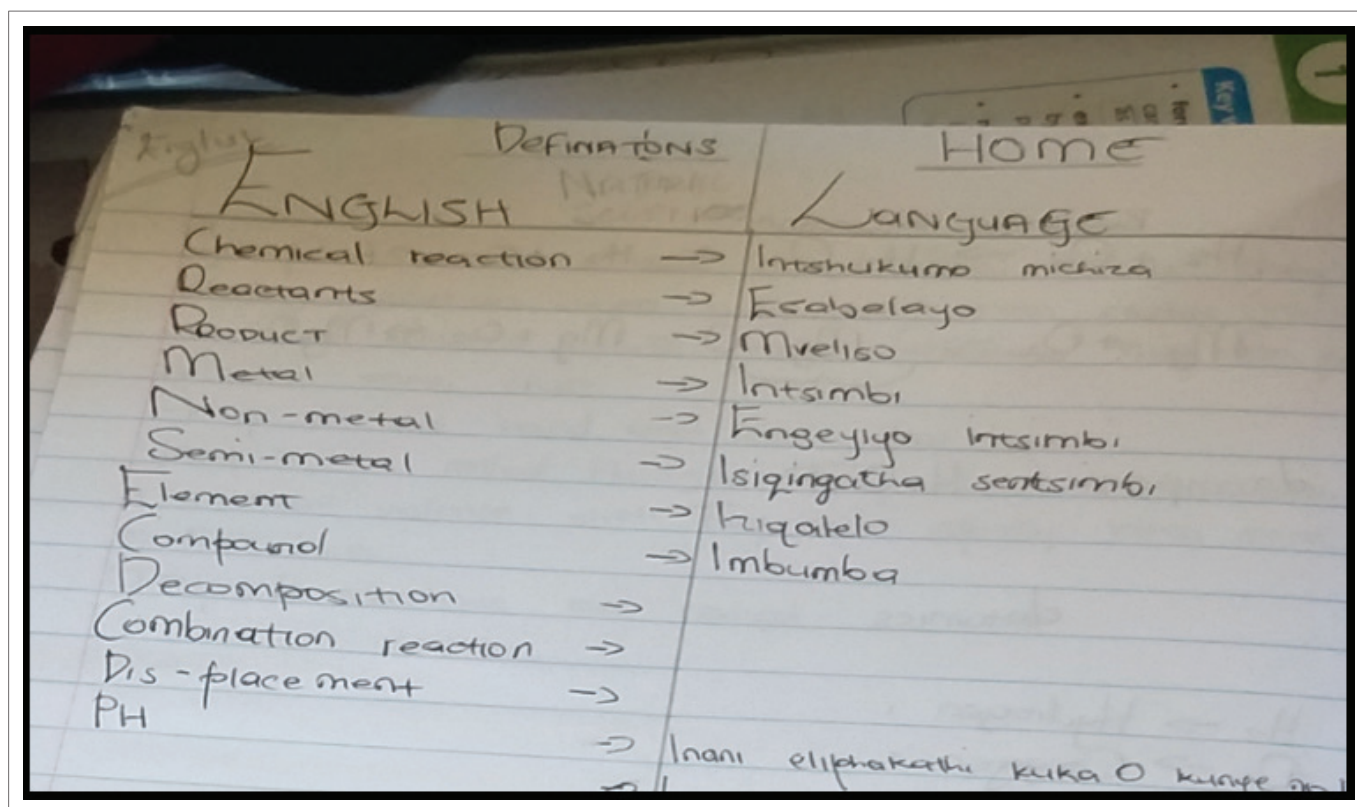 Definations
English
ENGLISH
Home
Language
Chemical reaction → Intshukumo michiza
Reactants → Esabelayo
Product → Mveliso
Metal → Intsimbi
Non-metal → Engeyiyo intsimbi
Semi-metal → Isiqingatha sentsimbi
Element → Isiqalelo
Compound → Imbumba
Decomposition →
Combination reaction →
Dis-placement →
PH → Inani eliphakathi kuka 0 kunye
Key